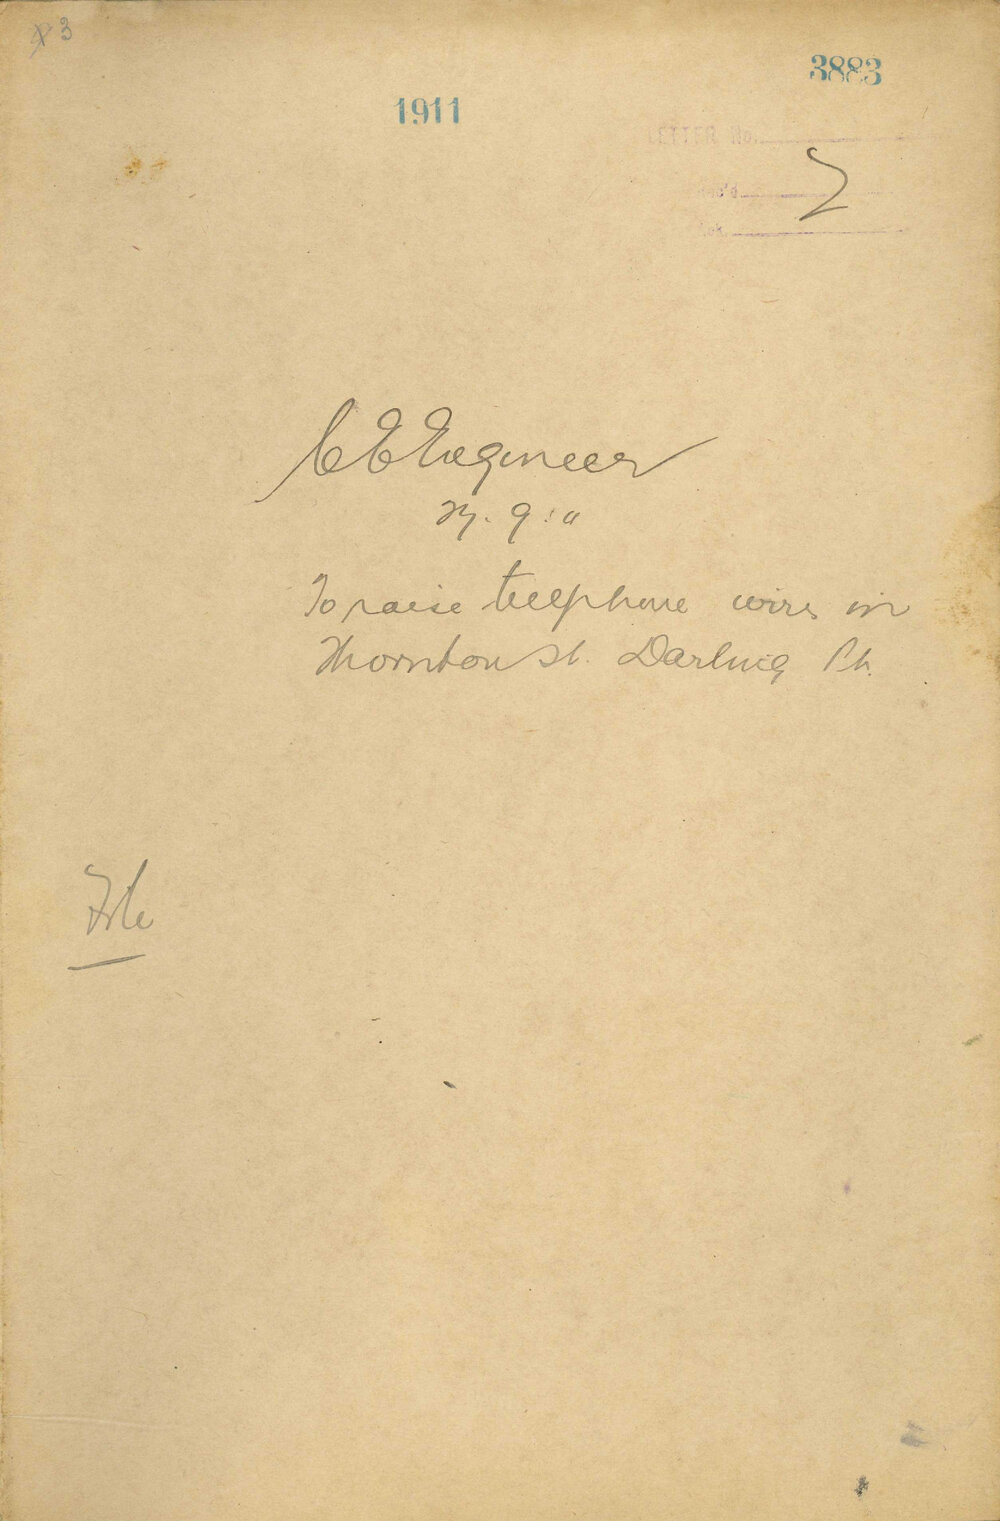 3
3883
1911
LETTER No.
Rec'd
Ack.
C E Engineer
27. 9. 11
To raise telephone wires in
Thornton St. Darling Pt.
File